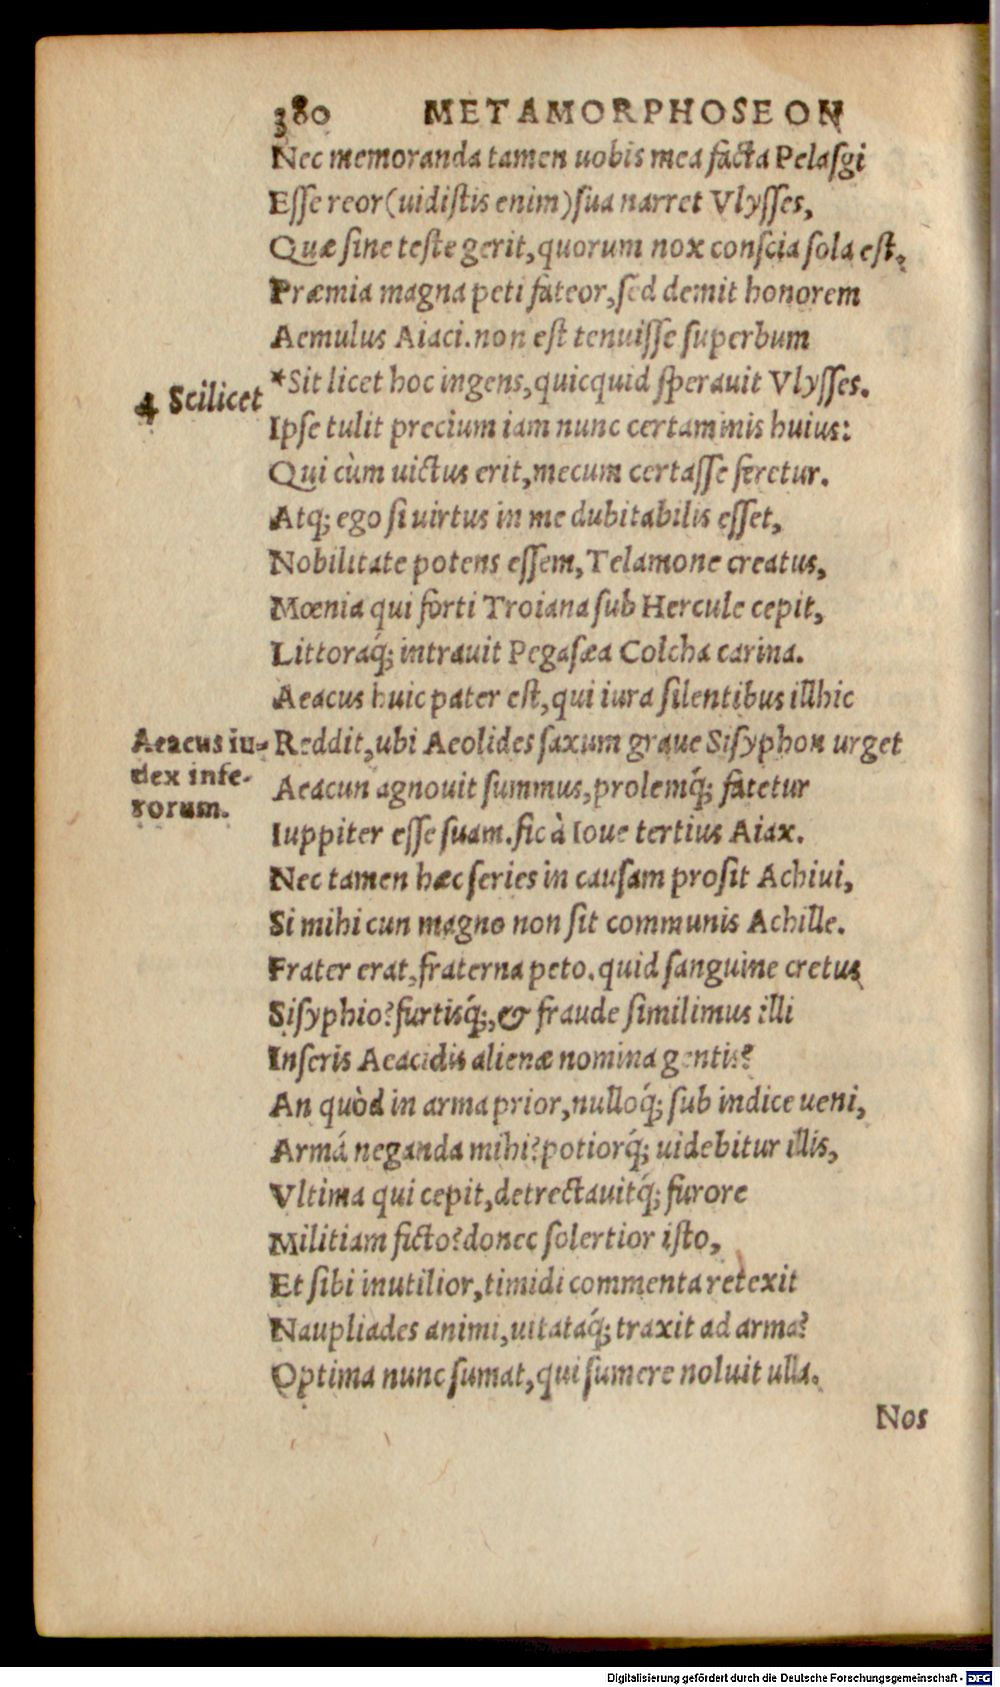 380 METAMORPHOSEON
Nec memoranda tamen uobis mea facta Pelasgi
Esse reor (uidistis enim) sua narret Vlysses,
Quæ sine teste gerit, quorum nox conscia sola est.
Præmia magna peti fateor, sed demit honorem
Aemulus Aiaci. non est tenuisse superbum
4 Scilicet
*Sit licet hoc ingens, quicquid sperauit Vlysses.
Ipse tulit precium iam nunc certaminis huius:
Qui cùm uictus erit, mecum certasse feretur.
Atq; ego si uirtus in me dubitabilis esset,
Nobilitate potens essem, Telamone creatus,
Mœnia qui forti Troiana sub Hercule cepit,
Littoraq́; intrauit Pegasæa Colcha carina.
Aeacus huic pater est, qui iura silentibus illhic
Aeacus iu-
dex infe-
rorum.
Reddit, ubi Aeolides saxum graue Sisyphon urget
Aeacun agnouit summus, prolemq́; fatetur
Iuppiter esse suam. sic à Ioue tertius Aiax.
Nec tamen hæc series in causam prosit Achiui,
Si mihi cun magno non sit communis Achille.
Frater erat, fraterna peto. quid sanguine cretus
Sisyphio? furtisq́;, & fraude similimus illi
Inseris Aeacidis alienæ nomina gentis?
An quòd in arma prior, nulloq́; sub indice ueni,
Armá neganda mihi? potiorq́; uidebitur illis,
Vltima qui cepit, detrectauitq́; furore
Militiam ficto? donec solertior isto,
Et sibi inutilior, timidi commenta retexit
Naupliades animi, uitataq́; traxit ad arma?
Optima nunc sumat, qui sumere noluit ulla.
Nos
Digitalisierung gefördert durch die Deutsche Forschungsgemeinschaft - DFG